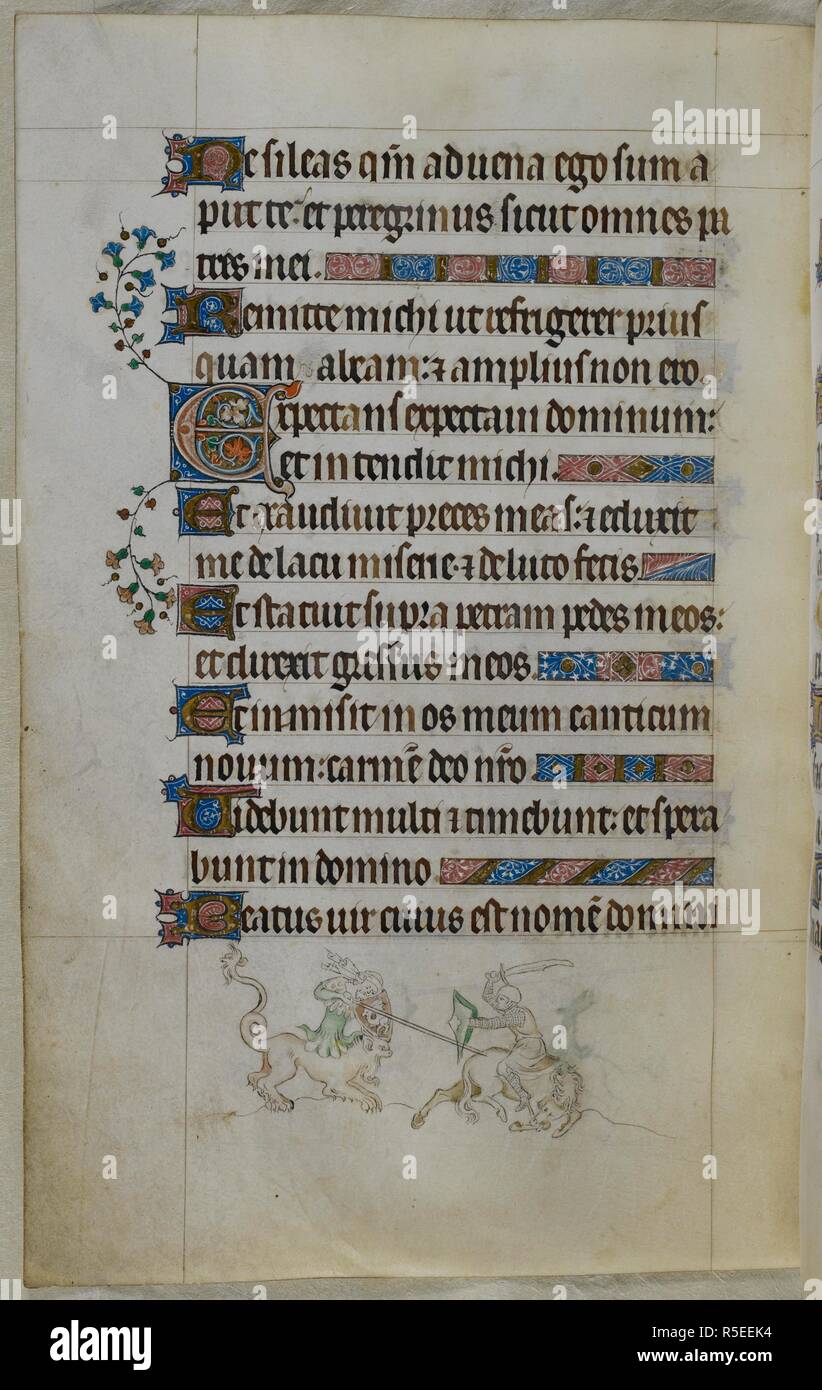 Ne sileas qm̄ aduena ego sum a
put te: et peregrinus sicut omnes pa
tres mei.
Remitte michi ut refrigerer prius
quam abeam: ⁊ amplius non ero.
Expectans expectaui dominum:
et intendit michi.
Et exaudiuit preces meas: ⁊ eduxit
me de lacu miserie ⁊ de luto fecis.
Et statuit supra petram pedes meos:
et direxit gressus meos.
Et inmisit in os meum canticum
nouum: carmē deo nr̄o
Uidebunt multi ⁊ timebunt: et spera
bunt in domino
Beatus uir cuius est nomē domini
alamy
alamy
Image ID: R5EEK4
www.alamy.com